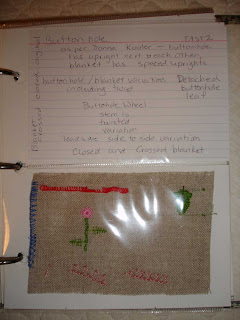 Buttonhole TAST 2
as per Donna Kooler - buttonhole
has uprights next to each other,
blanket has spaced uprights
buttonhole/blanket variations Detached
including ticket buttonhole
leaf
Buttonhole Wheel
stem is
twisted
variation
leaf side to side variation
Closed and Crossed blanket
blanket
closed